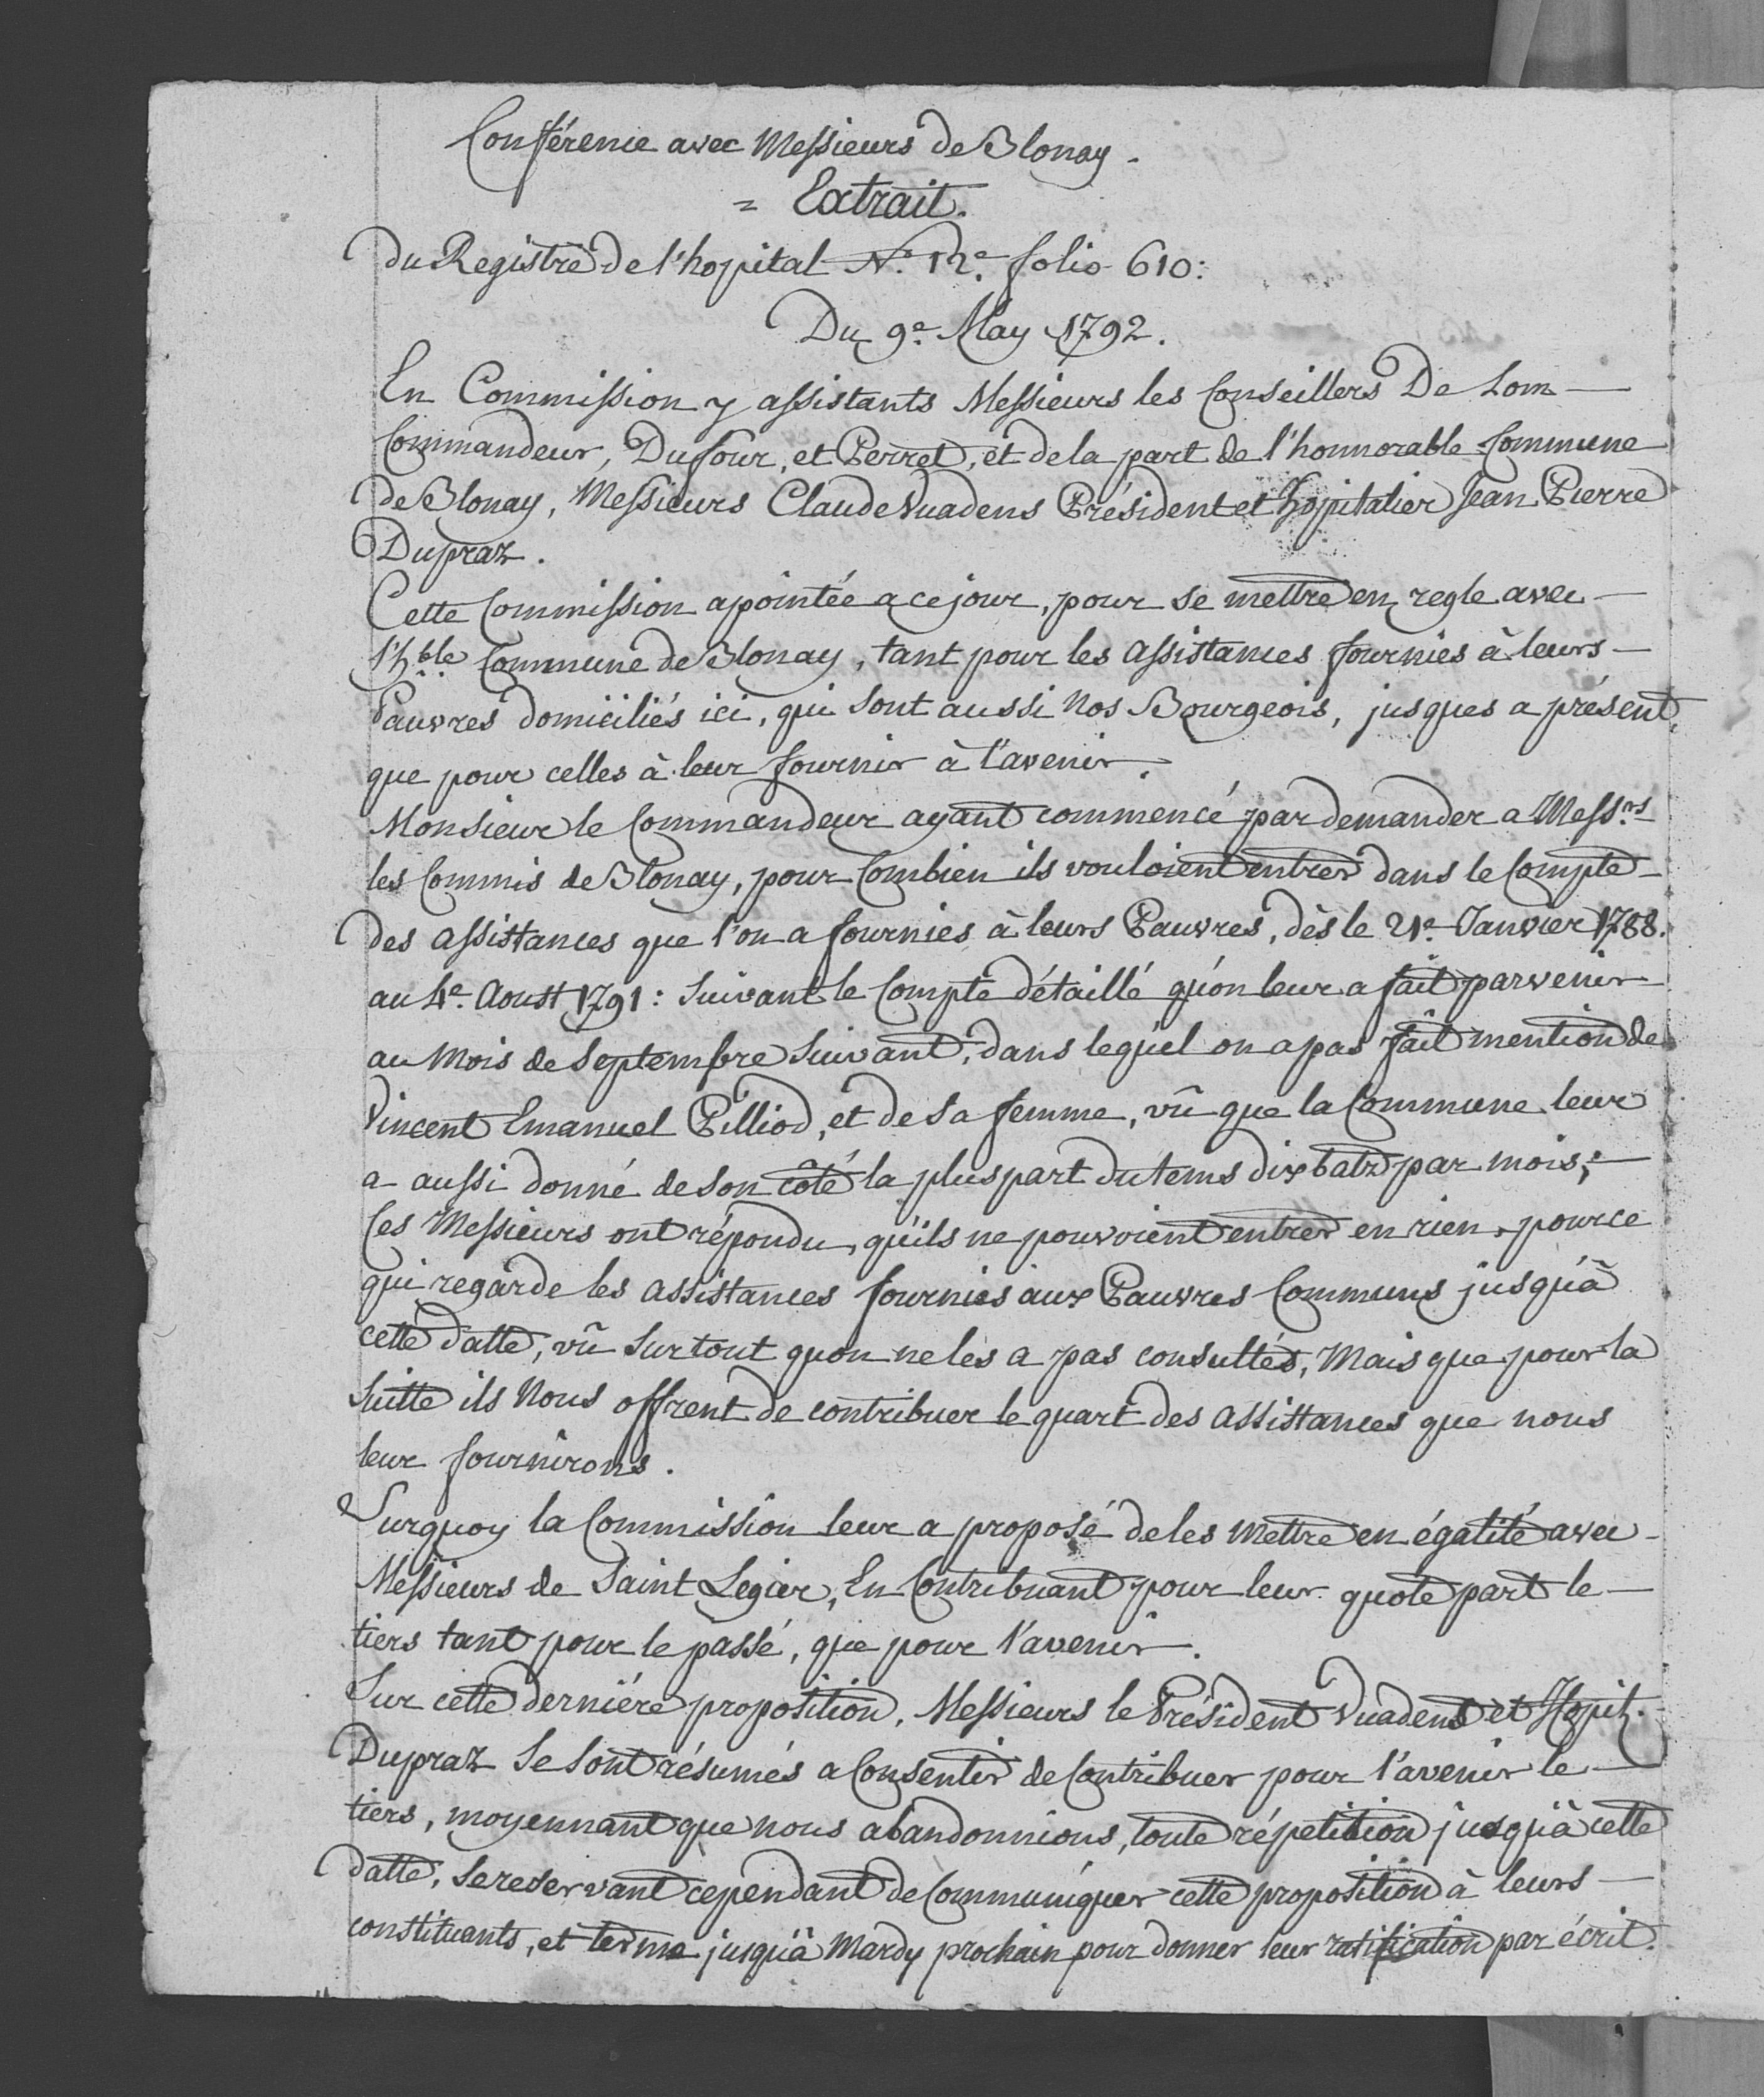 Conférence avec Messieurs de Blonay.
= Extrait.
Du Registre de l'hopital N.º 12.e folio 610:
Du 9.e May 1792.
En Commission y assistants Messieurs les Conseillers De Lom —
Commandeur, Dufour, et Perret, et de la part de l'honnorable Commune
de Blonay, Messieurs Claude Vuadens Président et hopitalier Jean Pierre
Dupraz.
Cette Commission apointée a ce jour, pour se mettre en regle avec —
l'hble Commune de Blonay, tant pour les assistances fournies à leurs —
Pauvres domiciliés ici, qui sont aussi Nos Bourgeois, jusques a présent,
que pour celles à leur fournir à l'avenir.
Monsieur le Commandeur ayant commencé par demander a Messrs
les Commis de Blonay, pour Combien ils vouloient entrer dans le Compte —
des assistances que l'on a fournies à leurs Pauvres, dès le 21.e Janvier 1788.
au 4.e Aoust 1791: Suivant le Compte détaillé qu'on leur a fait parvenir
au Mois de Septembre Suivant, dans lequel on a pas fait mention de
Vincent Emanuel Pilliod, et de Sa femme, vû que la Commune leur
a aussi donné de son côté la pluspart du tems dix batz par mois; —
Ces Messieurs ont répondu, qu'ils ne pouvoient entrer en rien, pour ce
qui regarde les assistances fournies aux Pauvres Communs jusqu'à
cette datte, vû Surtout quon ne les a pas consultés, Mais que pour la
Suitte ils Nous offrent de contribuer le quart des assistances que nous
leur fournirons.
Surquoy la Commission leur a proposé de les mettre en égalité avec —
Messieurs de Saint Legier, En Contribuant pour leur quote part le —
tiers tant pour le passé, que pour l'avenir.
Sur cette derniére proposition, Messieurs le Président Vuadens et Hopit.
Dupraz Se Sont résumés a Consentir de Contribuer pour l'avenir le —
tiers, moyennant que nous abandonnions, toute répetition jusqu'à cette
datte, Se reservant cependant de Communiquer cette proposition à leurs —
constituants, et terme jusqu'à Mardy prochain pour donner leur ratification par écrit.